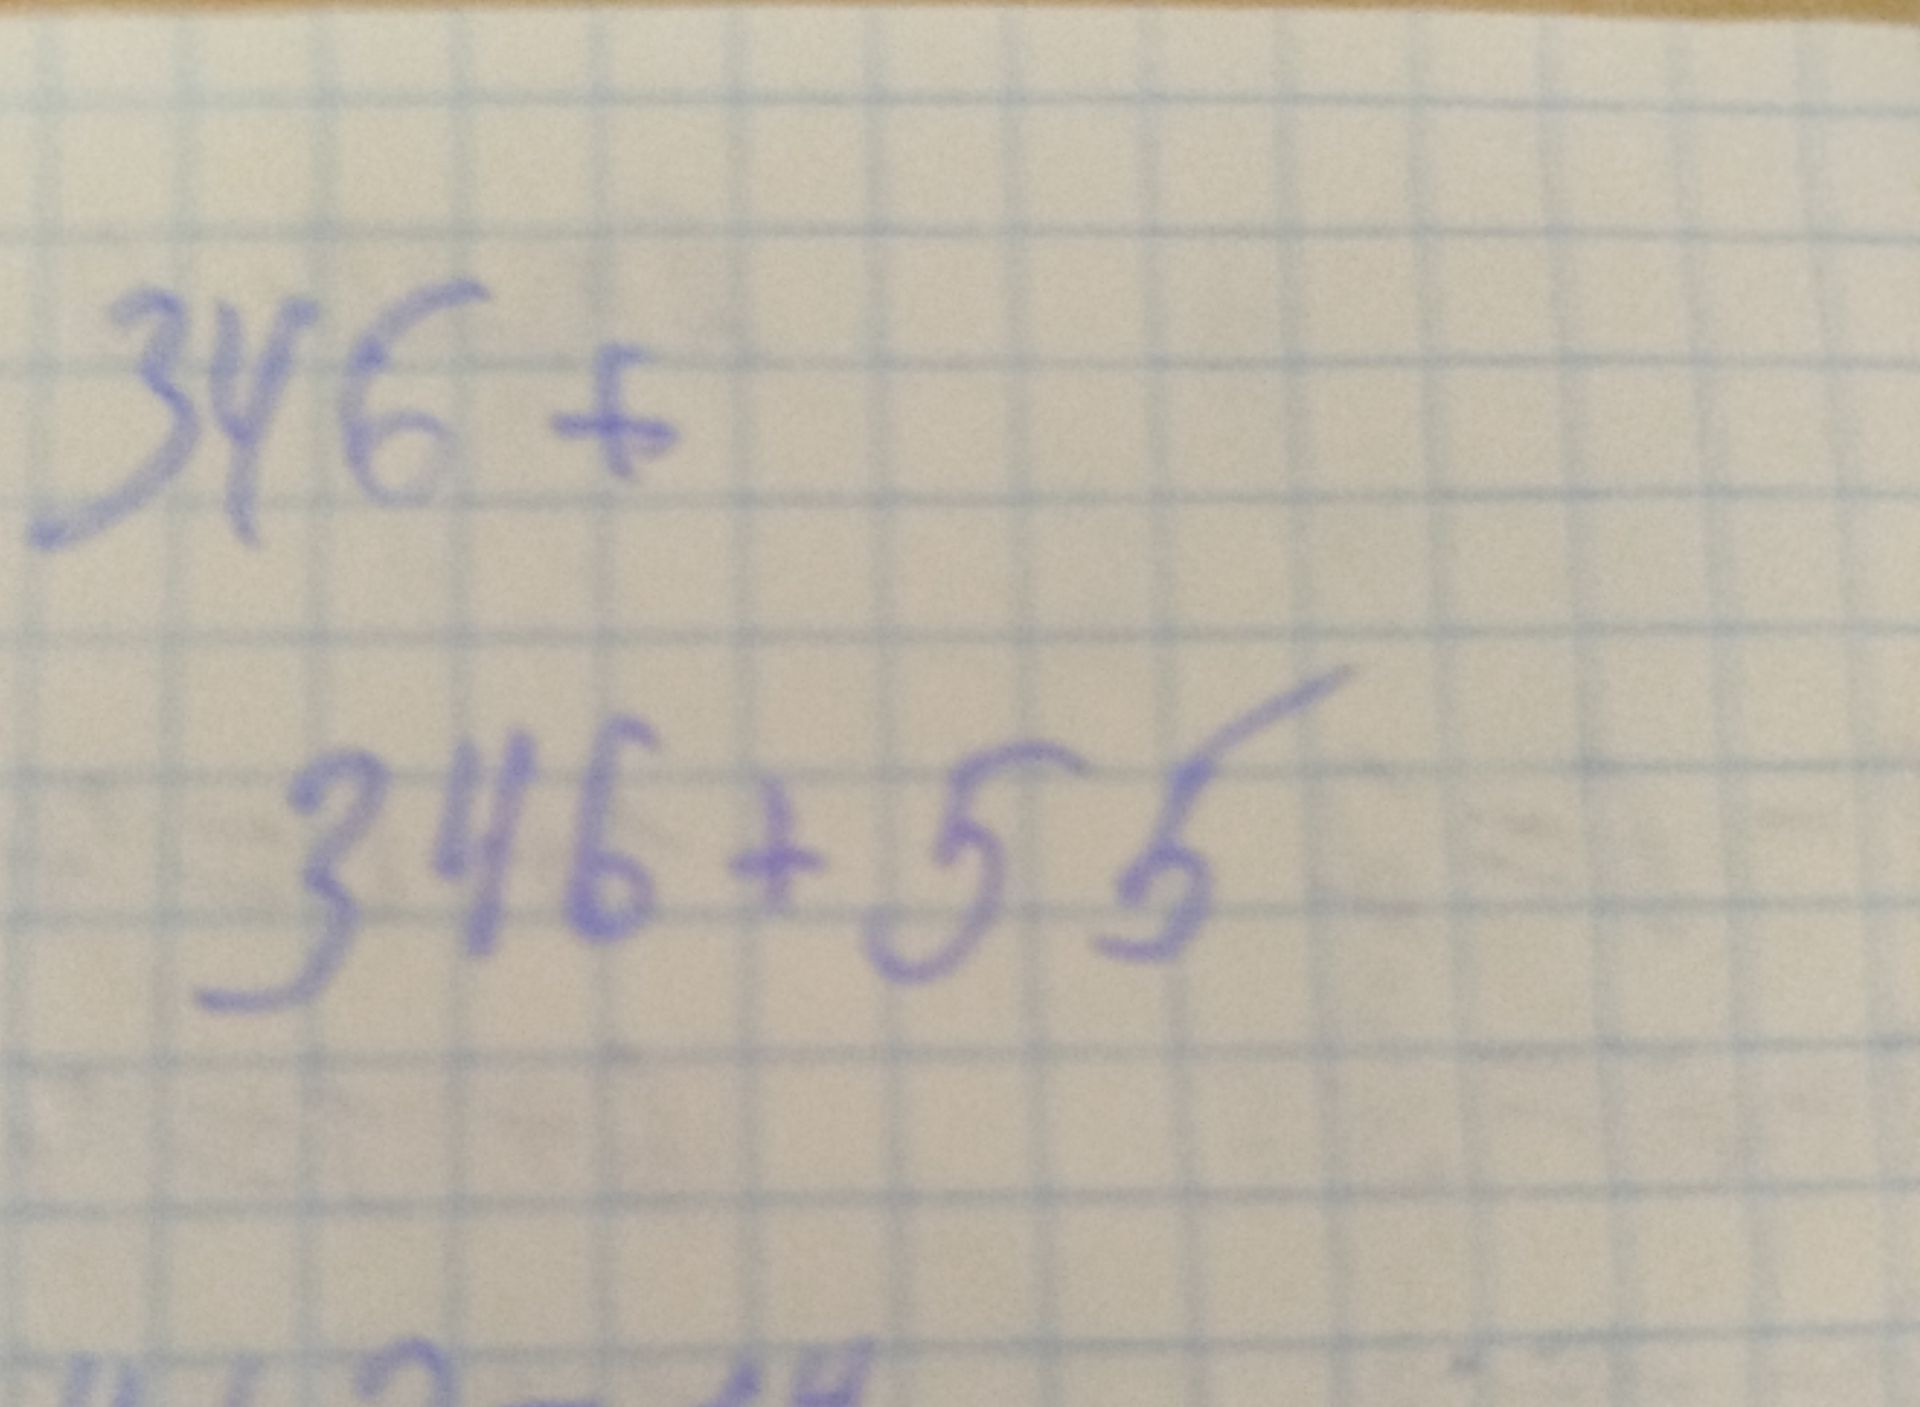 346 +
346 + 55